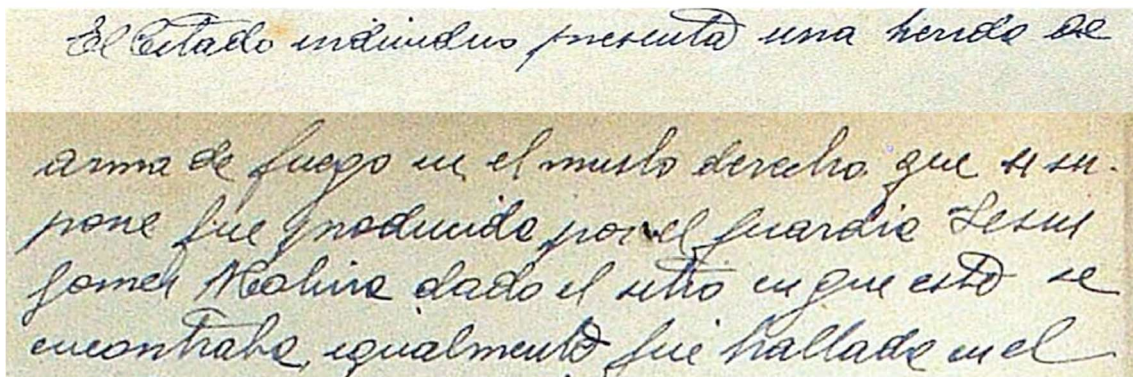 El Citado individuo presenta una herida de
arma de fuego en el muslo derecho que se su-
pone fue producida por el guardia Jesus
Gomez Molina dado el sitio en que esto se
encontraba, igualmente fue hallada en el